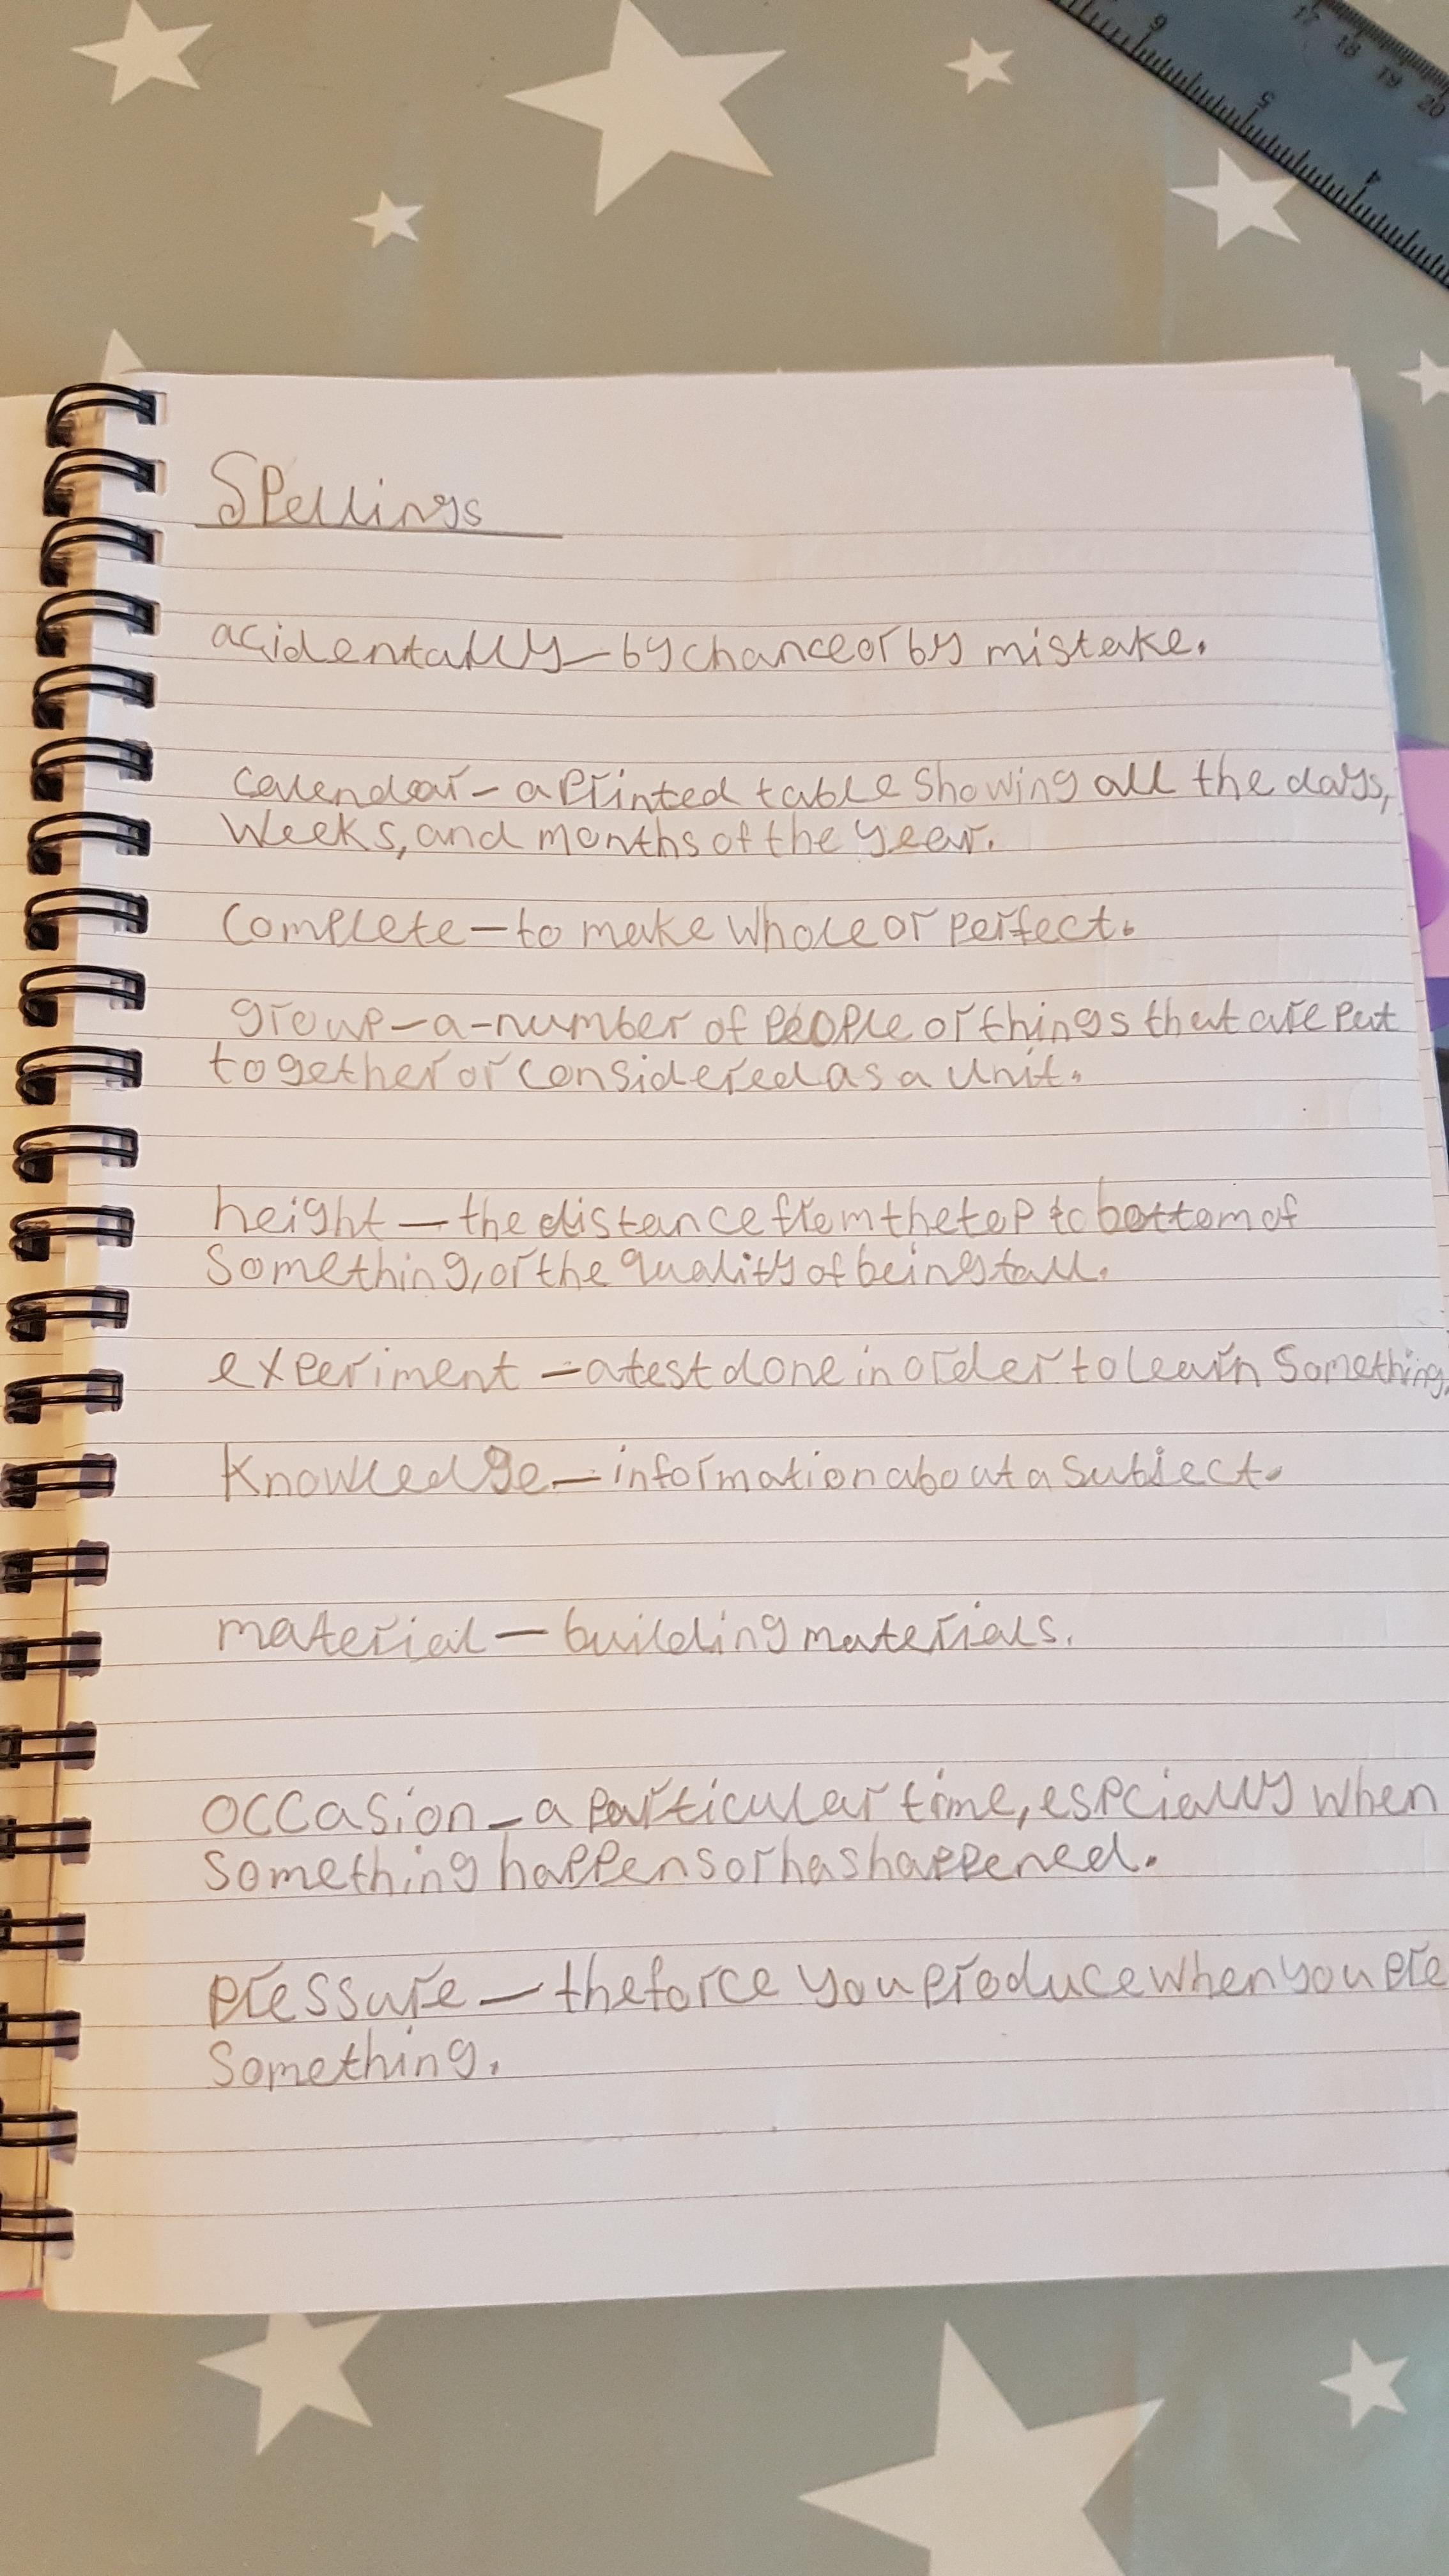 17 18 19 20
6 5 4
Spellings
acidentally – by chance or by mistake.
calendar – a printed table showing all the days,
weeks, and months of the year.
complete – to make whole or perfect.
group – a - number of people or things that are put
together or considered as a unit.
height – the distance from the top to bottom of
something, or the quality of being tall.
experiment – a test done in order to learn something.
knowledge – information about a subject.
material – building materials.
occasion – a particular time, espcially when
something happens or has happened.
pressure – the force you produce when you pre
something.